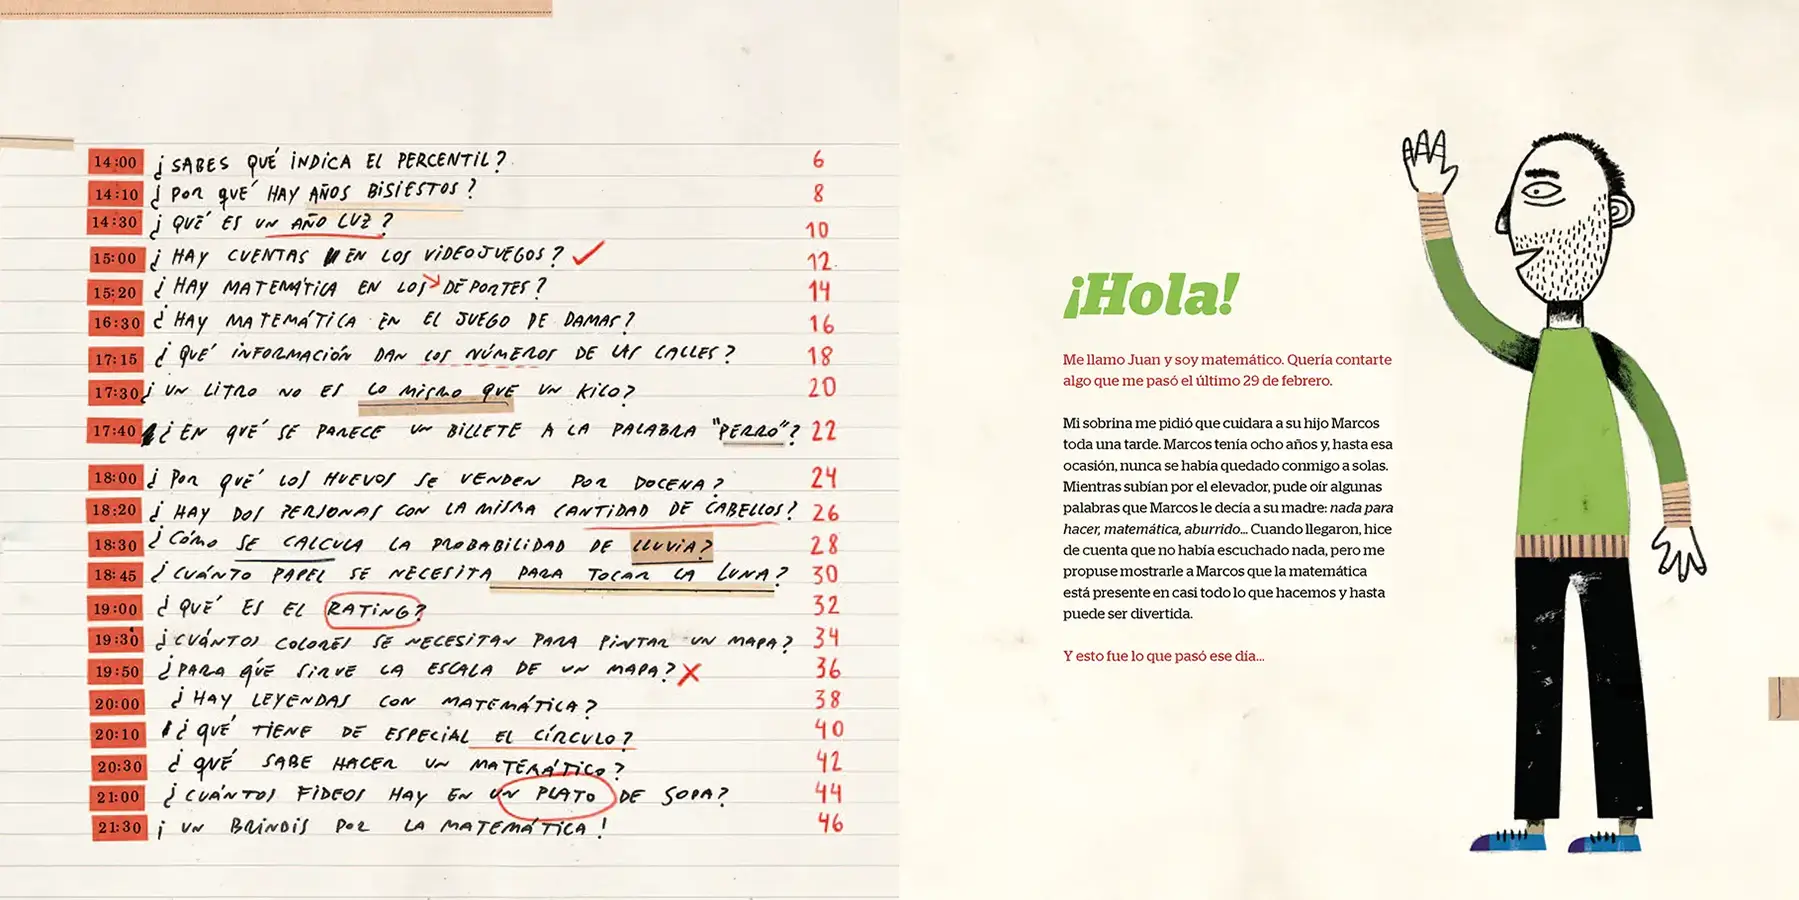 14:00 ¿SABES QUÉ INDICA EL PERCENTIL? 6
14:10 ¿POR QUÉ HAY AÑOS BISIESTOS? 8
14:30 ¿QUÉ ES UN AÑO LUZ? 10
15:00 ¿HAY CUENTAS EN LOS VIDEOJUEGOS? 12
15:20 ¿HAY MATEMÁTICA EN LOS DEPORTES? 14
16:30 ¿HAY MATEMÁTICA EN EL JUEGO DE DAMAS? 16
17:15 ¿QUÉ INFORMACIÓN DAN LOS NÚMEROS DE LAS CALLES? 18
17:30 ¿UN LITRO NO ES LO MISMO QUE UN KILO? 20
17:40 ¿EN QUÉ SE PARECE UN BILLETE A LA PALABRA "PERRO"? 22
18:00 ¿POR QUÉ LOS HUEVOS SE VENDEN POR DOCENA? 24
18:20 ¿HAY DOS PERSONAS CON LA MISMA CANTIDAD DE CABELLOS? 26
18:30 ¿CÓMO SE CALCULA LA PROBABILIDAD DE LLUVIA? 28
18:45 ¿CUÁNTO PAPEL SE NECESITA PARA TOCAR LA LUNA? 30
19:00 ¿QUÉ ES EL RATING? 32
19:30 ¿CUÁNTOS COLORES SE NECESITAN PARA PINTAR UN MAPA? 34
19:50 ¿PARA QUÉ SIRVE LA ESCALA DE UN MAPA? 36
20:00 ¿HAY LEYENDAS CON MATEMÁTICA? 38
20:10 ¿QUÉ TIENE DE ESPECIAL EL CÍRCULO? 40
20:30 ¿QUÉ SABE HACER UN MATEMÁTICO? 42
21:00 ¿CUÁNTOS FIDEOS HAY EN UN PLATO DE SOPA? 44
21:30 ¡UN BRINDIS POR LA MATEMÁTICA! 46
¡Hola!
Me llamo Juan y soy matemático. Quería contarte
algo que me pasó el último 29 de febrero.
Mi sobrina me pidió que cuidara a su hijo Marcos
toda una tarde. Marcos tenía ocho años y, hasta esa
ocasión, nunca se había quedado conmigo a solas.
Mientras subían por el elevador, pude oír algunas
palabras que Marcos le decía a su madre: nada para
hacer, matemática, aburrido... Cuando llegaron, hice
de cuenta que no había escuchado nada, pero me
propuse mostrarle a Marcos que la matemática
está presente en casi todo lo que hacemos y hasta
puede ser divertida.
Y esto fue lo que pasó ese día...